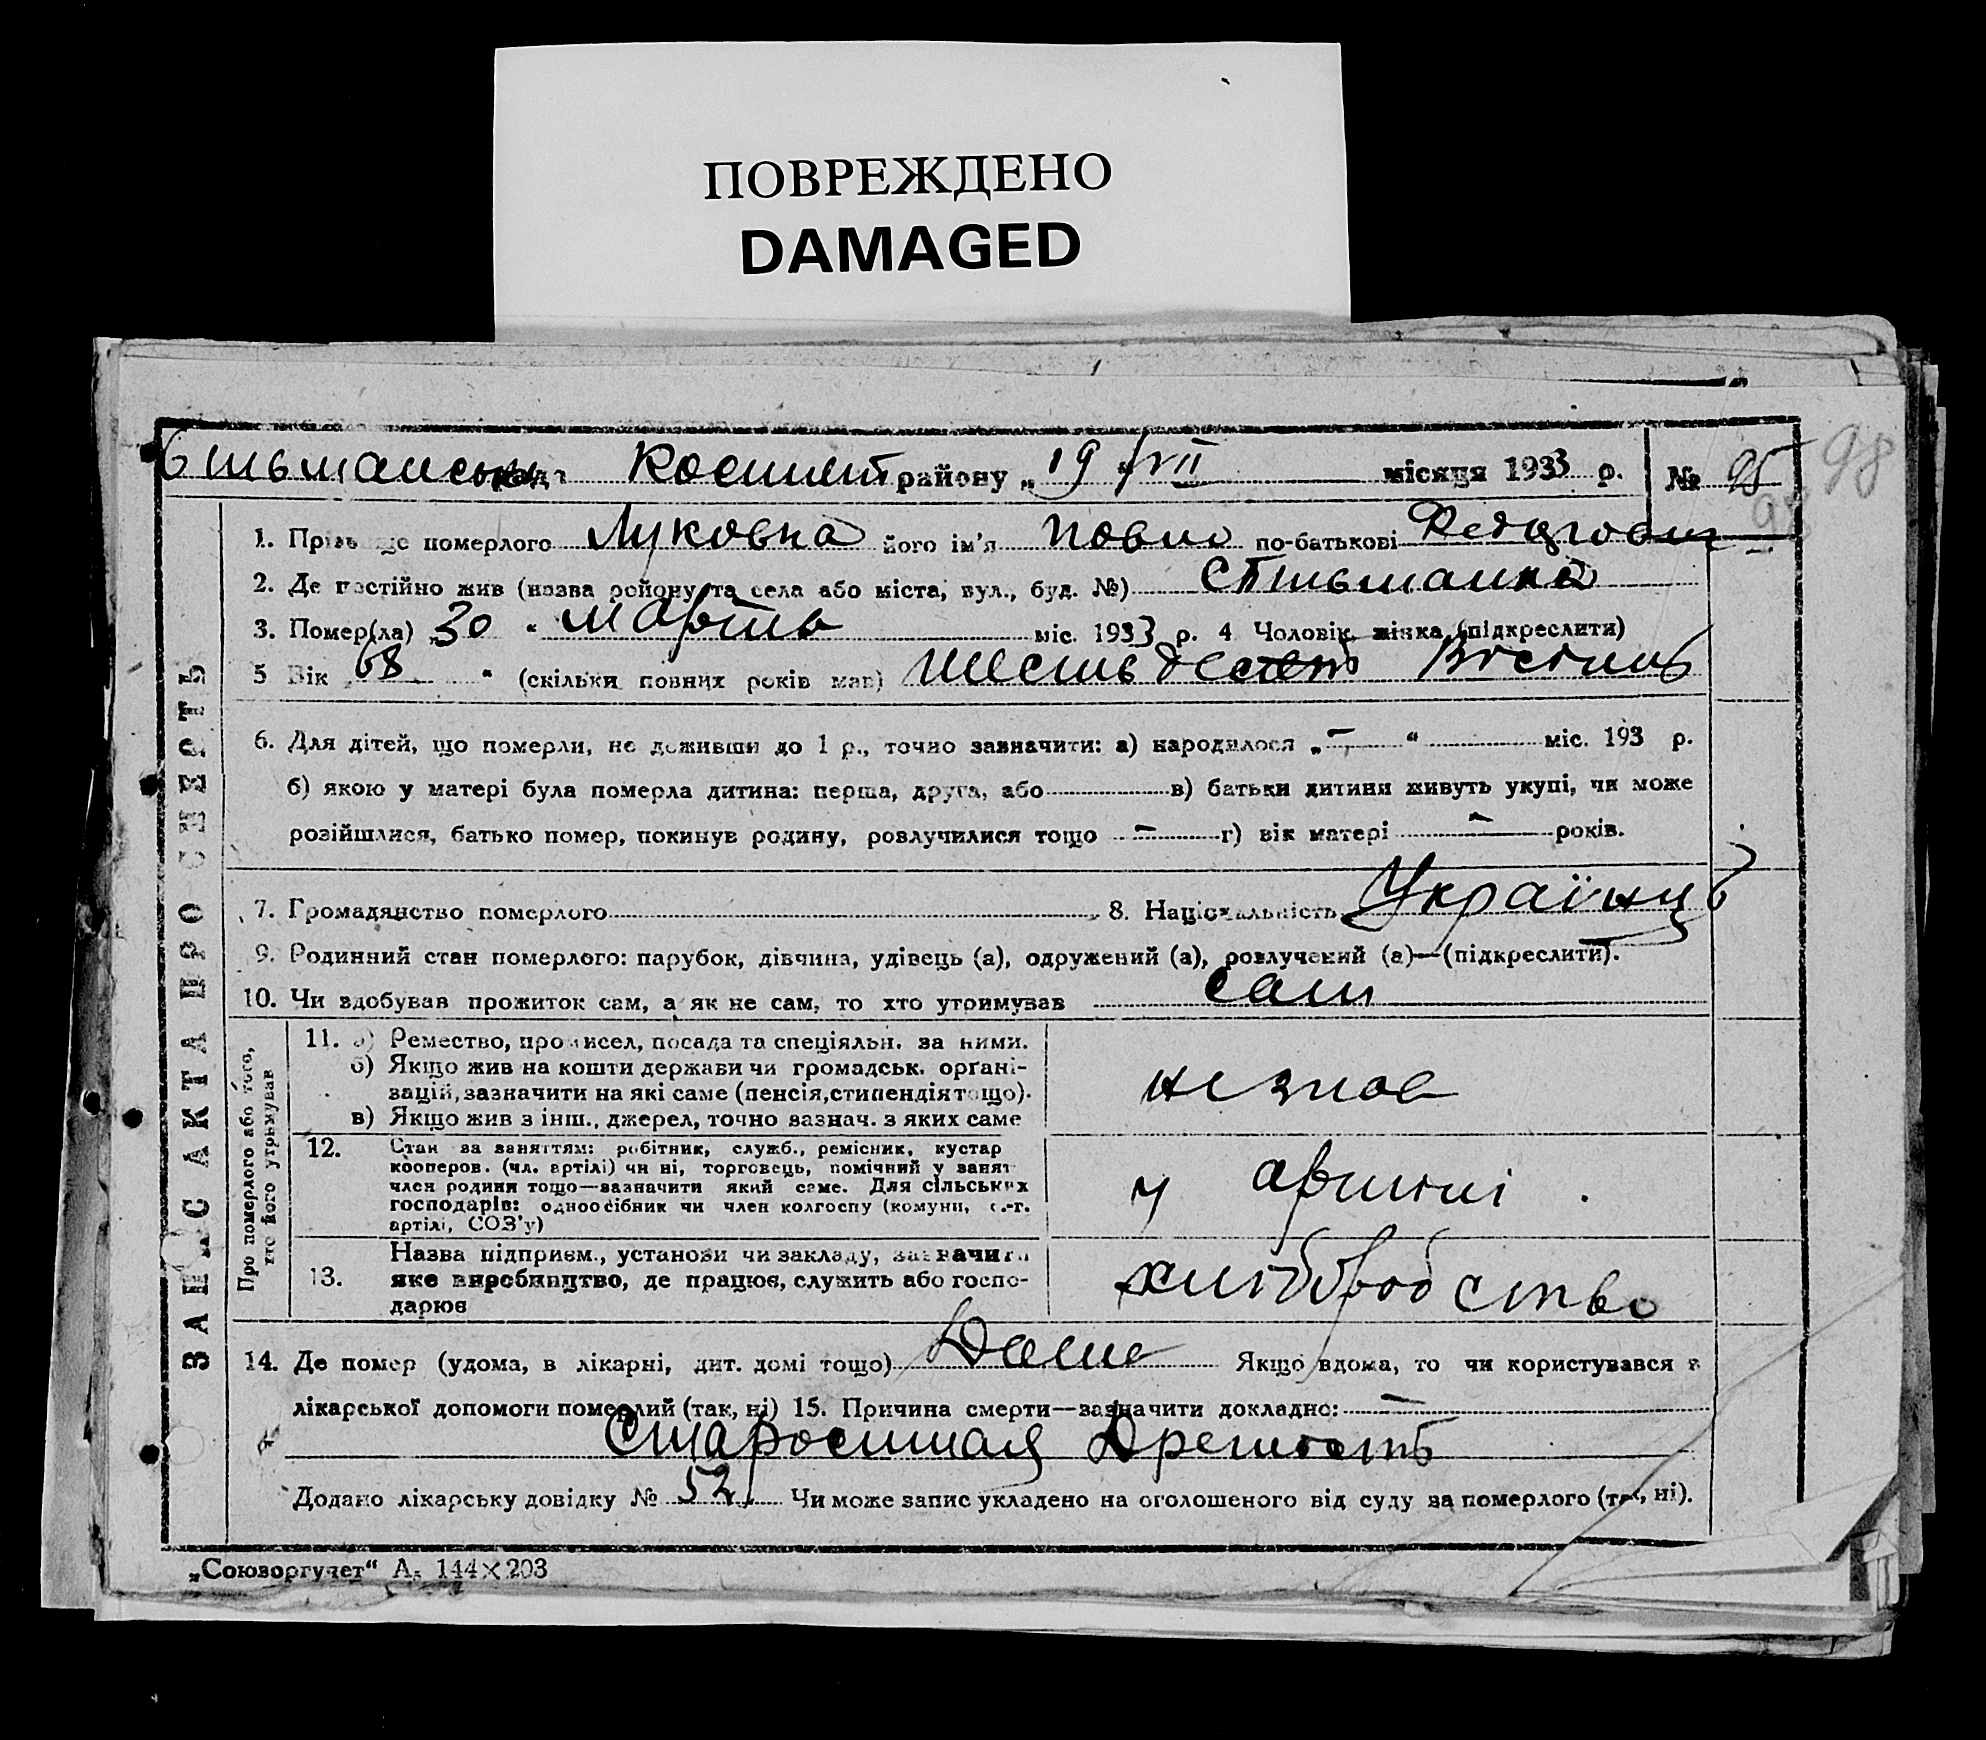 ПОВРЕЖДЕНО
DAMAGED
району „19“ VII місяця 1933 р. № 95 98
98
ЗАПИС АКТА ПРО СМЕРТЬ
1. Прізвище померлого Луковка його ім'я Повло по-батькові
2. Де постійно жив (назва району та села або міста, вул., буд. №)
3. Помер(ла) „30“ Марть міс. 1933 р. 4 Чоловік, жінка (підкреслити)
5 Вік 68 “ (скільки повних років мав) Шестьдесеть
6. Для дітей, що померли, не доживши до 1 р., точно зазначити: а) народилося „–“ міс. 193 р.
б) якою у матері була померла дитина: перша, друга, або в) батьки дитини живуть укупі, чи може
розійшлися, батько помер, покинув родину, розлучилися тощо – г) вік матері – років.
7. Громадянство померлого 8. Національність Українць
9. Родинний стан померлого: парубок, дівчина, удівець (а), одружений (а), розлучений (а)—(підкреслити).
10. Чи здобував прожиток сам, а як не сам, то хто утримував сам
Про померлого або того, хто його утримував
11. а) Ремество, промисел, посада та спеціяльн. за ними.
б) Якщо жив на кошти держави чи громадськ. орґані-
зацій, зазначити на які саме (пенсія, стипендія тощо).
в) Якщо жив з інш., джерел, точно зазнач. з яких саме
12. Стан за заняттям: робітник, служб., ремісник, кустар
кооперов. (чл. артілі) чи ні, торговець, помічний у занят
член родини тощо—зазначити який саме. Для сільських
господарів: одноосібник чи член колгоспу (комуни, с.-г.
артілі, СОЗ'у)
у артілі
13. Назва підприєм., установи чи закладу, зазначити
яке виробництво, де працює, служить або госпо-
дарює
14. Де помер (удома, в лікарні, дит. домі тощо) Дома Якщо вдома, то чи користувався з
лікарської допомоги померлий (так, ні) 15. Причина смерти—зазначити докладно: –
Додано лікарську довідку № 521 Чи може запис укладено на оголошеного від суду за померлого (так, ні).
„Союзоргучет“ А₅ 144×203